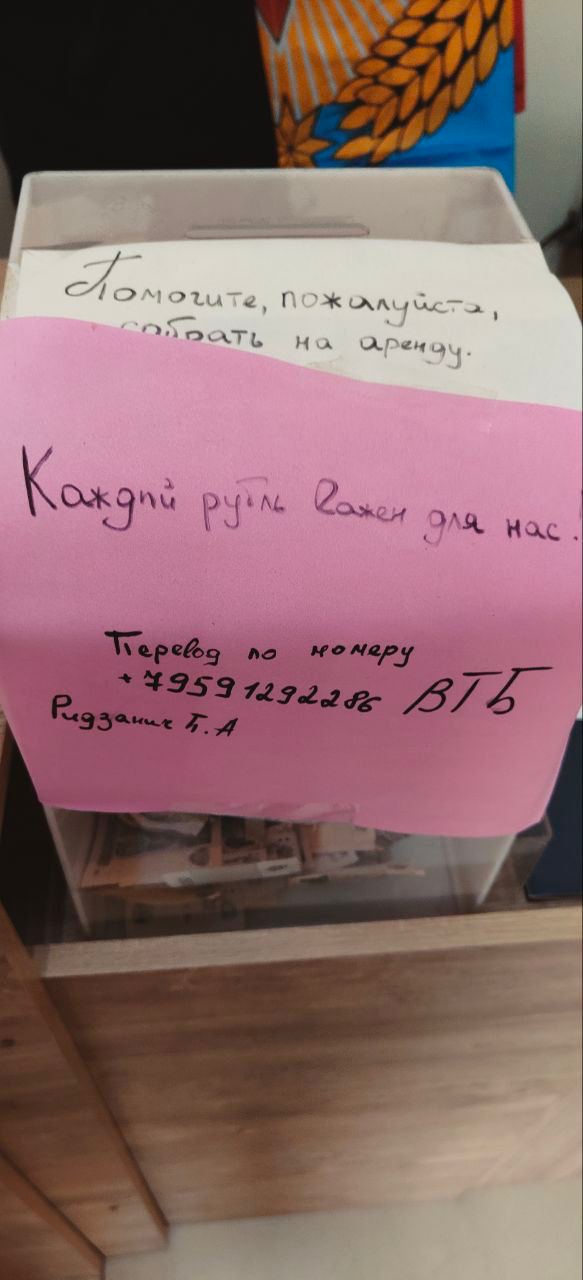 Помогите, пожалуйста,
собрать на аренду.
Каждый рубль важен для нас!
Перевод по номеру
+79591292286 ВТБ